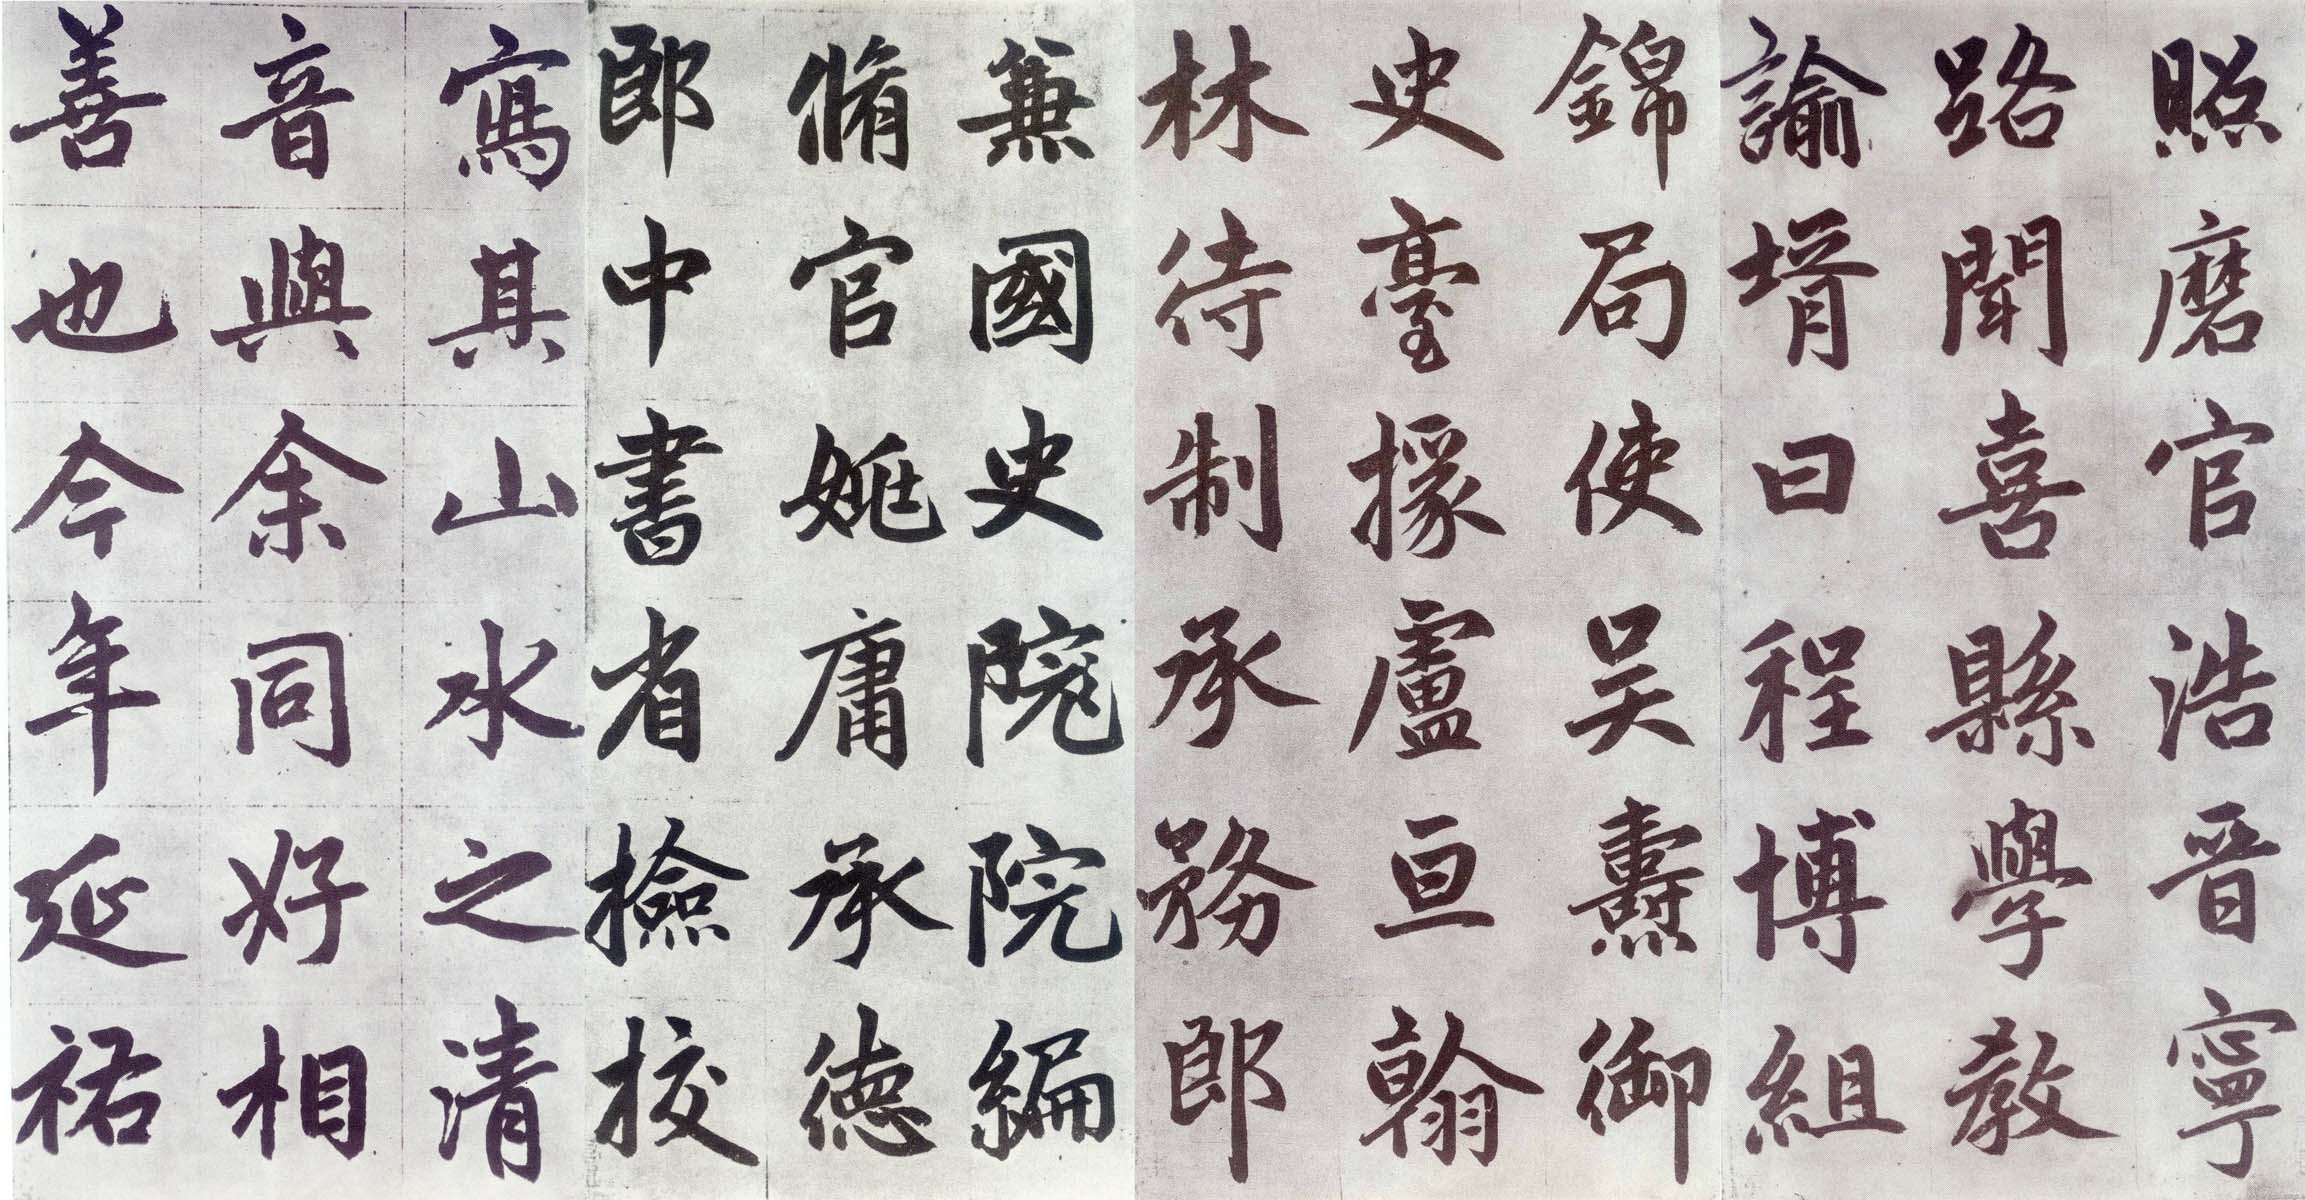 照磨官浩晉寧
路聞喜縣學教
諭壻曰程博組
錦局使吴燾御
史臺掾盧亘翰
林待制承務郎
兼國史院院編
脩官姚庸承德
郎中書省撿挍
寫其山水之清
音與余同好相
善也今年延祐